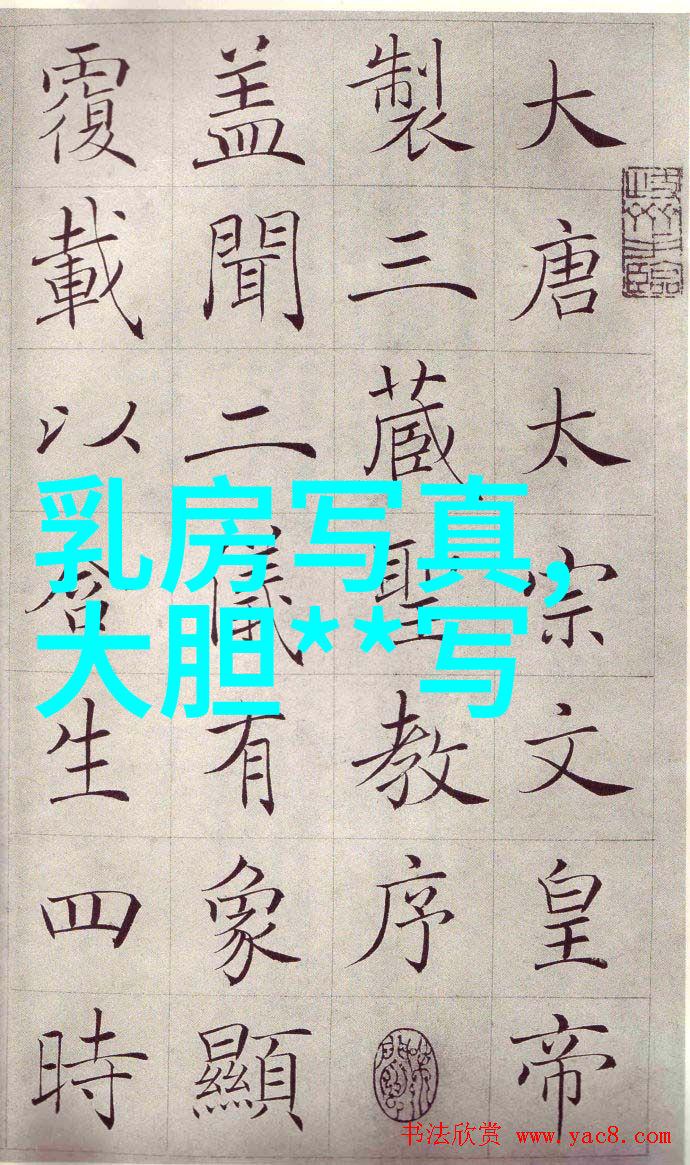 大唐太宗文皇帝
製三藏聖教序
盖聞二儀有象顯
覆載以含生四時
乳房写真,
大胆**写
书法欣赏 www.yac8.com